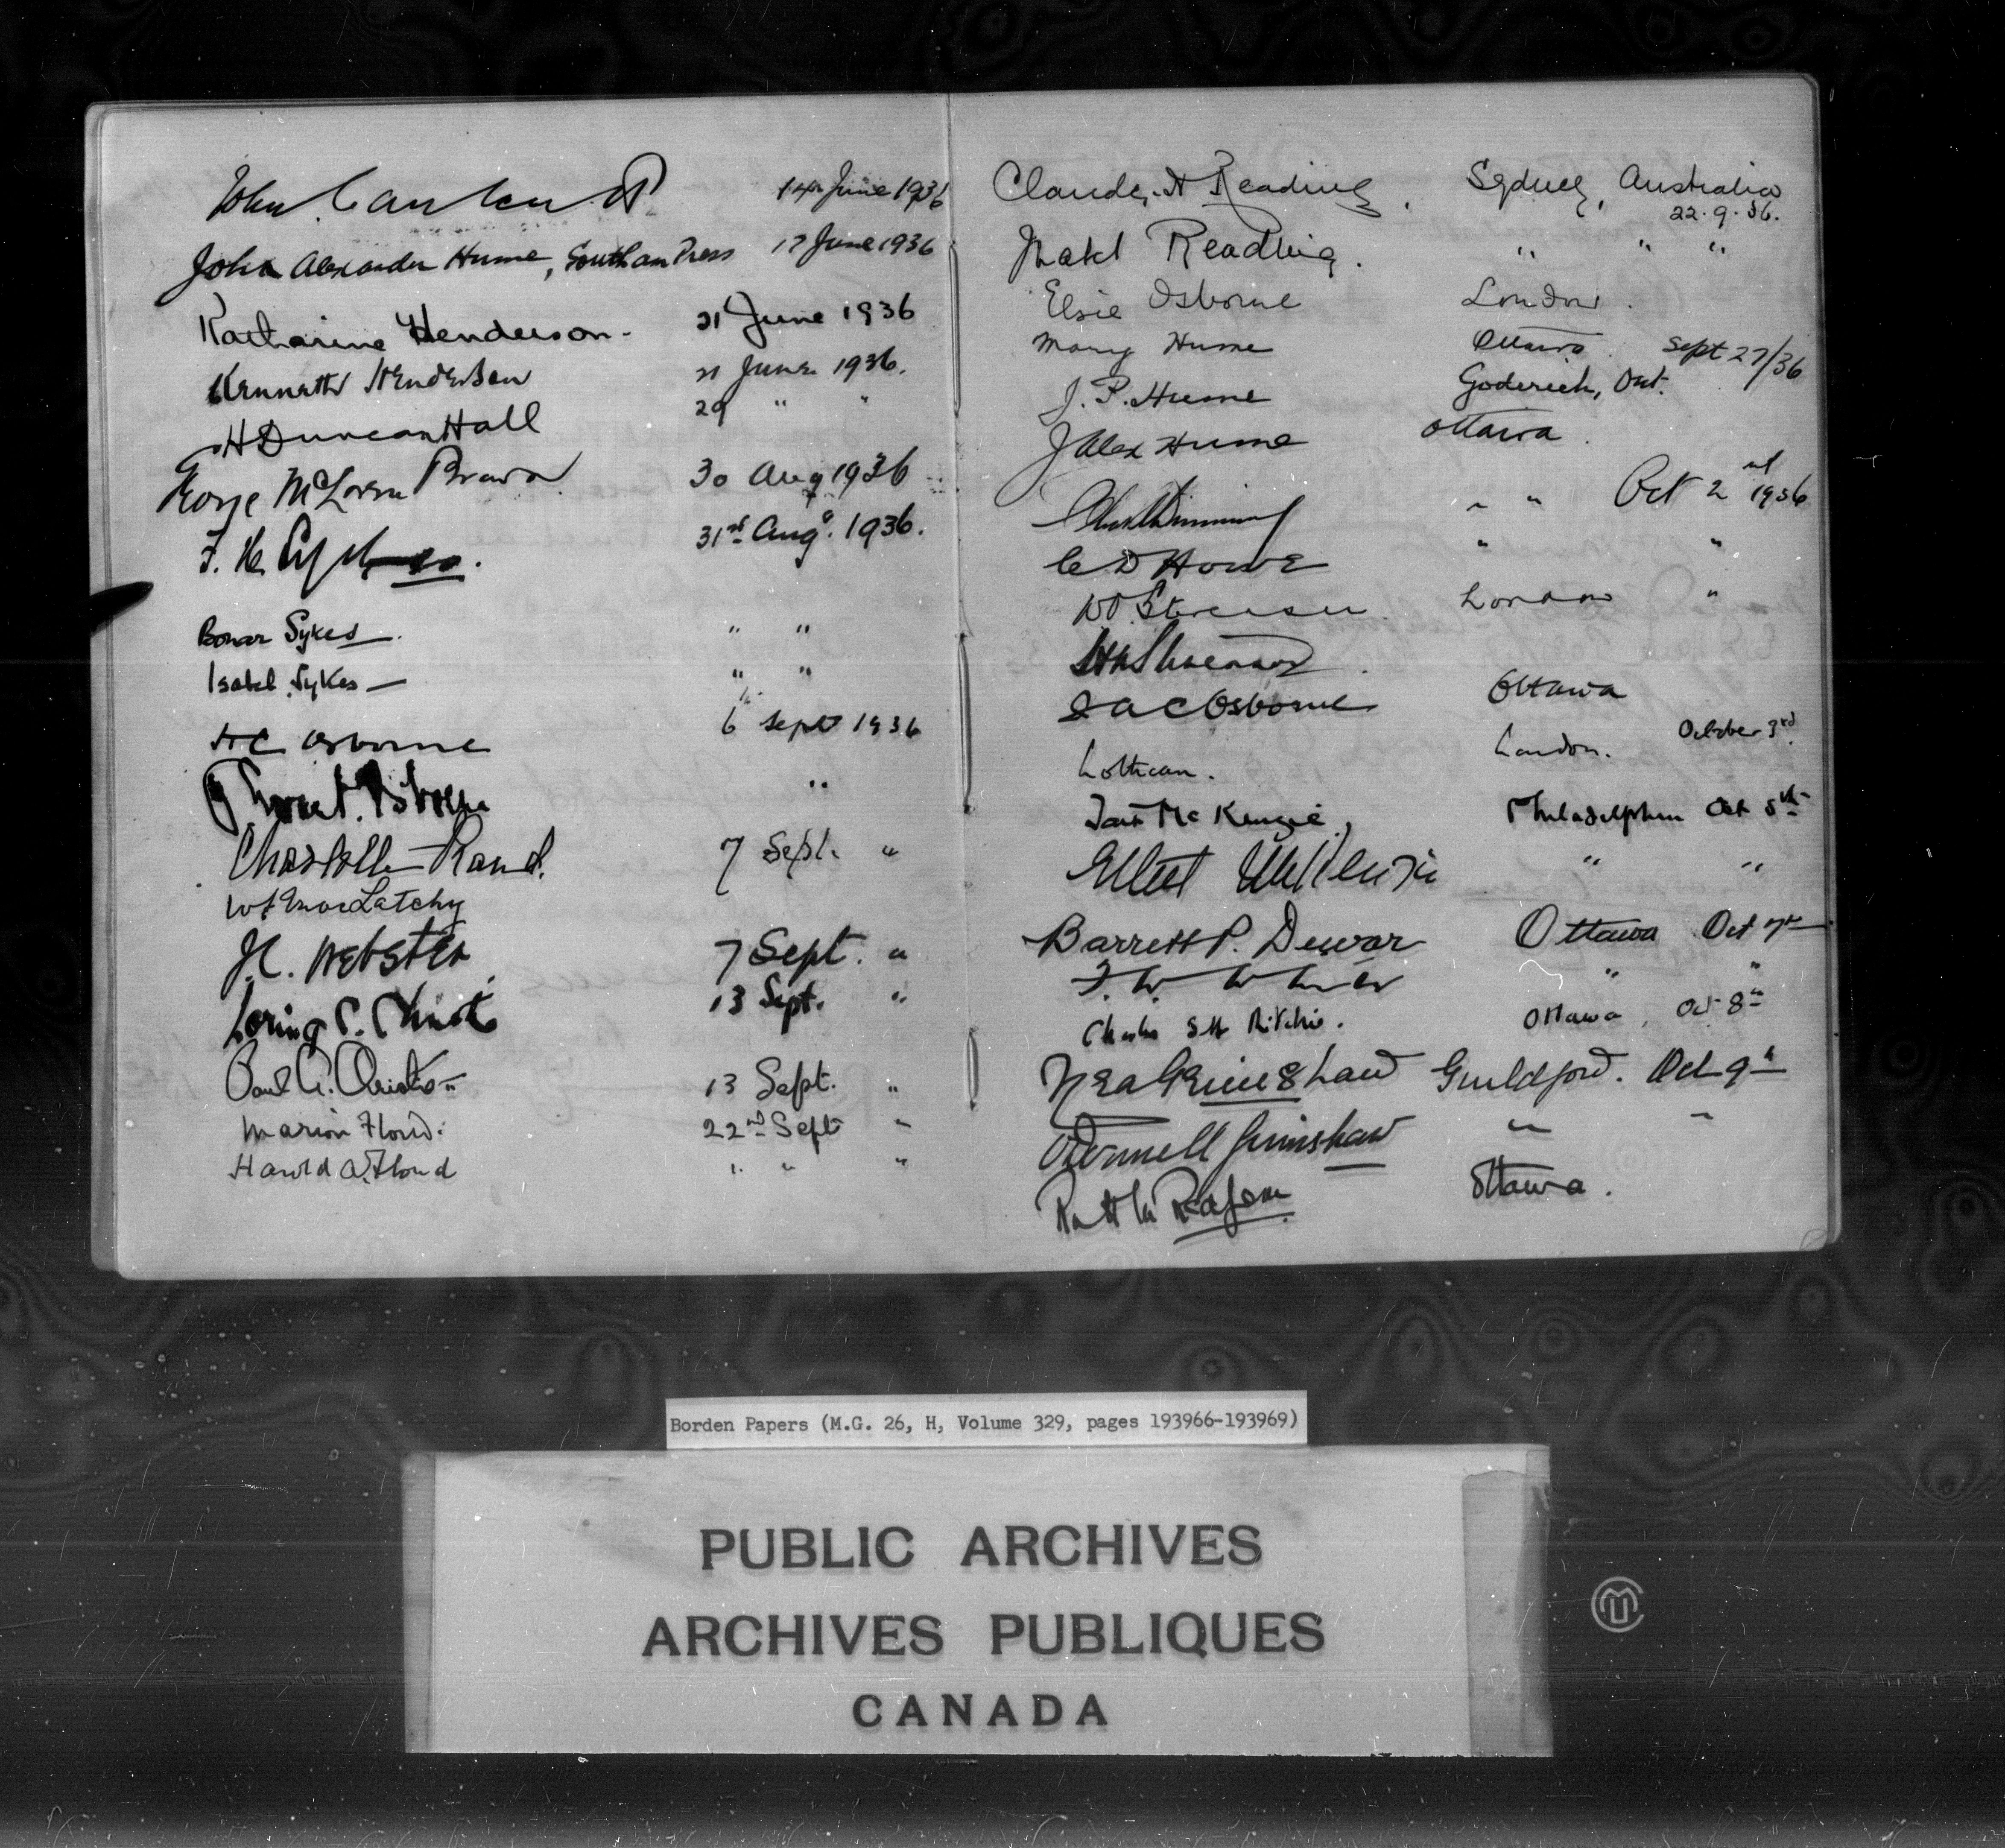 John 14th June 1936
John Alexander Hume, Southam Press 17 June 1936
Katharine Henderson - 21 June 1936
Kenneth Henderson 21 June 1936.
H Duncan Hall 29 " "
George McLaren Brown 30 Aug 1936
31st Aug. 1936.
Bonar Sykes. " "
Isabel Sykes — " "
H C Osborne 6 Sept 1936
Osborne "
Rand. 7 Sept. "
Latchy
J.C. Webster 7 Sept. "
Loring C. Christie 13 Sept. "
Paul A. 13 Sept. "
Marion Floud. 22nd Sept "
Harold A. Floud " " "
Claude. H Reading. Sydney, Australia
22.9.36.
Mabel Reading. " " "
Elsie Osborne London.
Mary Hume Ottawa. Sept 27/36
J. P. Hume Goderich, Ont.
J Alex Hume Ottawa.
Dunning " " Oct 2nd 1936
C D Howe " "
London "
Osborne Ottawa
Lothian. London. October 3rd.
Tait McKenzie, Philadelphia Oct 5th
McKenzie " "
Barrett P. Dewar Ottawa Oct 7th
" "
Charles Ritchie. Ottawa, Oct 8th
Grimshaw Guildford. Oct 9th
Grimshaw " "
Ottawa.
Borden Papers (M.G. 26, H, Volume 329, pages 193966-193969)
PUBLIC ARCHIVES
ARCHIVES PUBLIQUES
CANADA